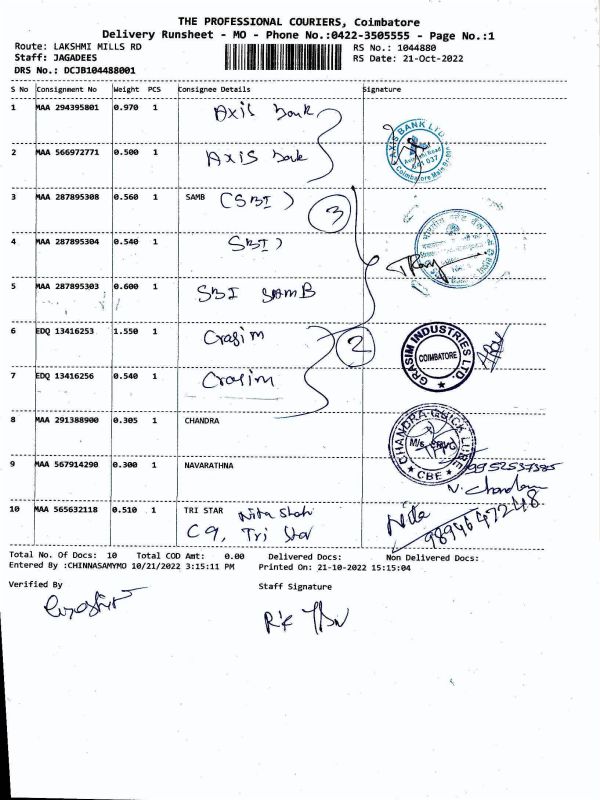 THE PROFESSIONAL COURIERS, Coimbatore
Delivery Runsheet - MO - Phone No.:0422-3505555 - Page No.:1
Route: LAKSHMI MILLS RD RS No.: 1044880
Staff: JAGADEES RS Date: 21-Oct-2022
DRS No.: DCJB104488001
S No Consignment No Weight PCS Consignee Details Signature
1 MAA 294395801 0.970 1 Axis bank
AXIS BANK LTD
641 037
2 MAA 566972771 0.500 1 Axis bank
3 MAA 287895308 0.560 1 SAMB (SBI) 3
4 MAA 287895304 0.540 1 SBI)
5 MAA 287895303 0.600 1 SBI SAMB
6 EDQ 13416253 1.550 1 Grasim 2
GRASIM INDUSTRIES LTD.
COIMBATORE
7 EDQ 13416256 0.540 1 Grasim
8 MAA 291388900 0.305 1 CHANDRA
CHANDRA QUICK LUBE
CBE
9 MAA 567914290 0.300 1 NAVARATHNA
10 MAA 565632118 0.510 1 TRI STAR Nita Shah Nita
C9, Tri Star
Total No. Of Docs: 10 Total COD Amt: 0.00 Delivered Docs: Non Delivered Docs:
Entered By :CHINNASAMYMO 10/21/2022 3:15:11 PM Printed On: 21-10-2022 15:15:04
Verified By Staff Signature